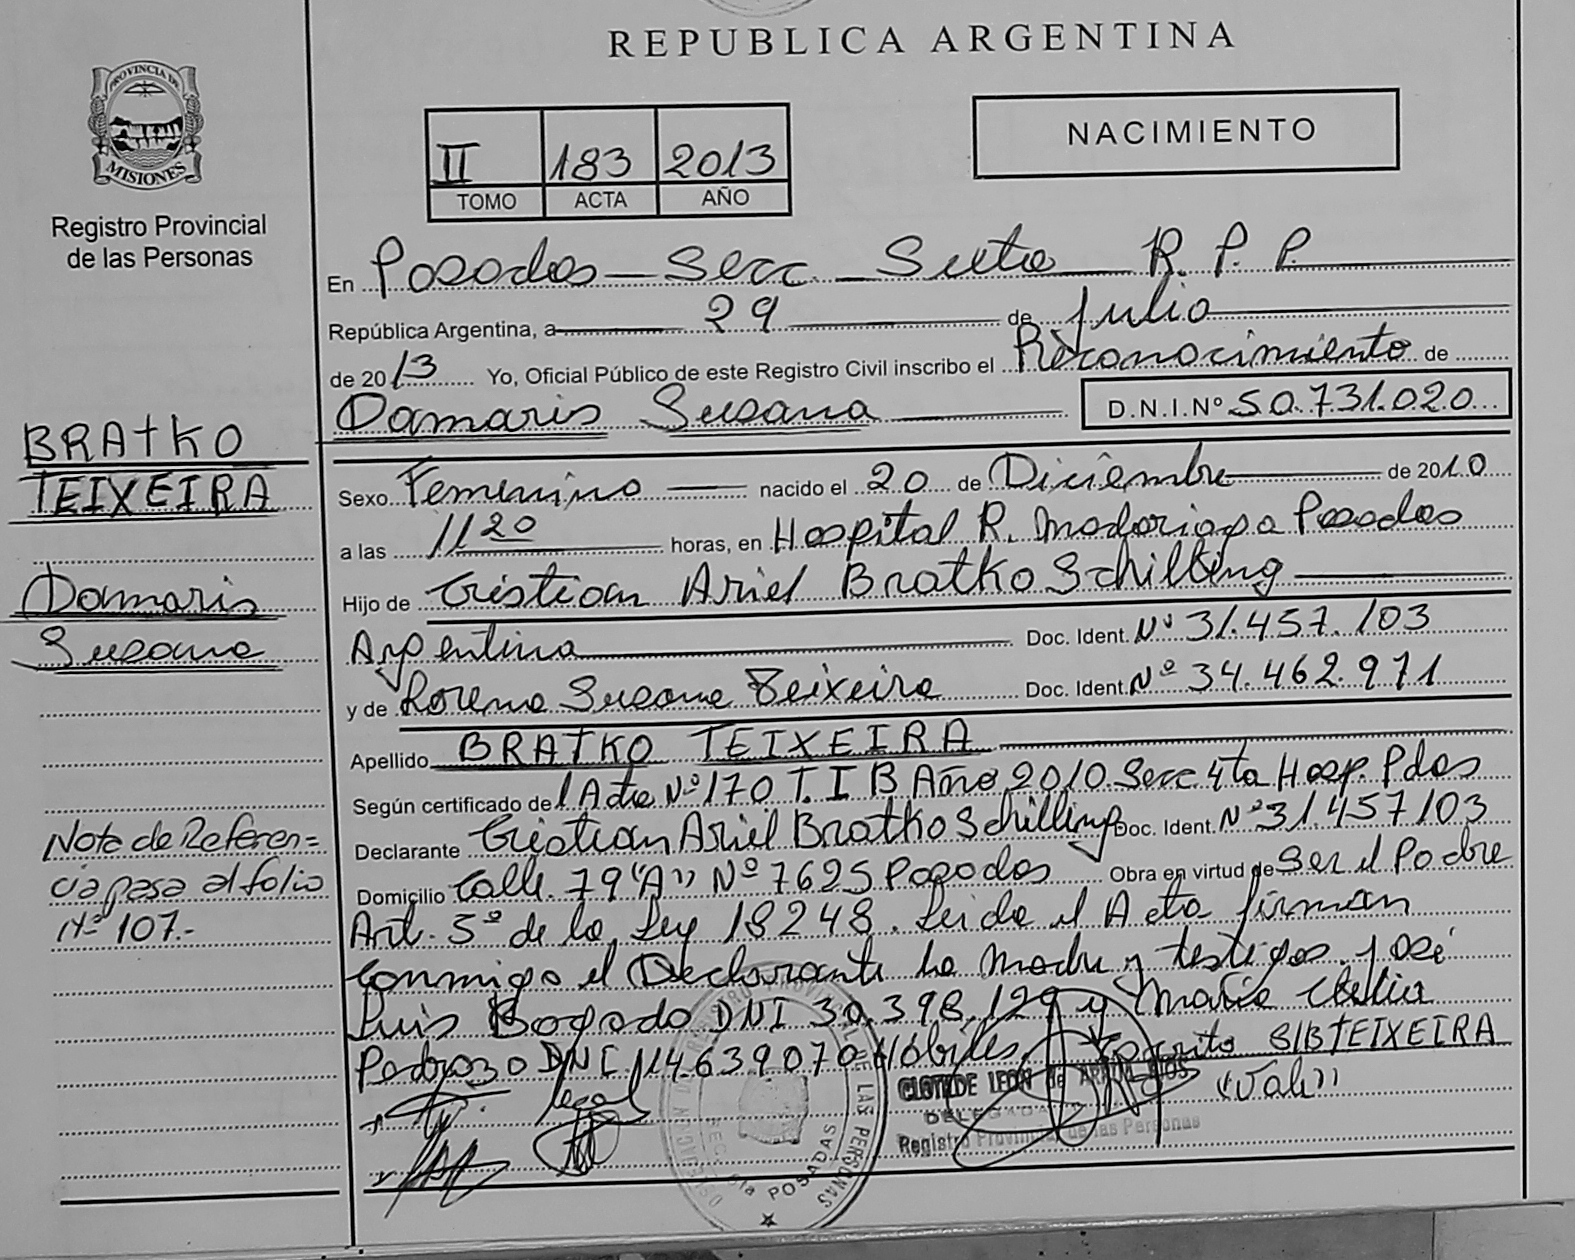 REPUBLICA ARGENTINA
PROVINCIA DE
MISIONES
Registro Provincial
de las Personas
II 183 2013
TOMO ACTA AÑO
NACIMIENTO
En Posadas - Secc. Sexta R. P. P.
República Argentina, a 29 de Julio
de 2013 Yo, Oficial Público de este Registro Civil inscribo el Reconocimiento de
Damaris Susana D.N.I.Nº 50.731.020
BRATKO
TEIXEIRA
Damaris
Susana
Sexo Femenino nacido el 20 de Diciembre de 2010
a las 11 20 horas, en Hospital R. Madariaga Posadas
Hijo de Cristian Ariel Bratko Schilling
Argentina Doc. Ident. Nº 31.457.103
y de Lorena Susana Teixeira Doc. Ident. Nº 34.462.971
Apellido BRATKO TEIXEIRA
Según certificado de Acta Nº 170 T. I B Año 2010 Secc 4ta Hosp. Pdas
Declarante Cristian Ariel Bratko Schilling Doc. Ident. Nº 31457103
Domicilio Calle 79 "A" Nº 7625 Posadas Obra en virtud de Ser el Padre
Art. 5º de la Ley 18248. Leida el Acta firman
conmigo el Declarante la Madre y testigos José
Luis Bogado DNI 30.398.129 y María Clelia
Pedrozo DNI 14639070 Hábiles. S/B TEIXEIRA
"Vale"
legal
Nota de Referen=
cia pasa al folio
Nº 107.-
CLOTILDE LEON de
DELEGADA
Registro Provincial de las Personas
REGISTRO PROVINCIAL DE LAS PERSONAS
POSADAS